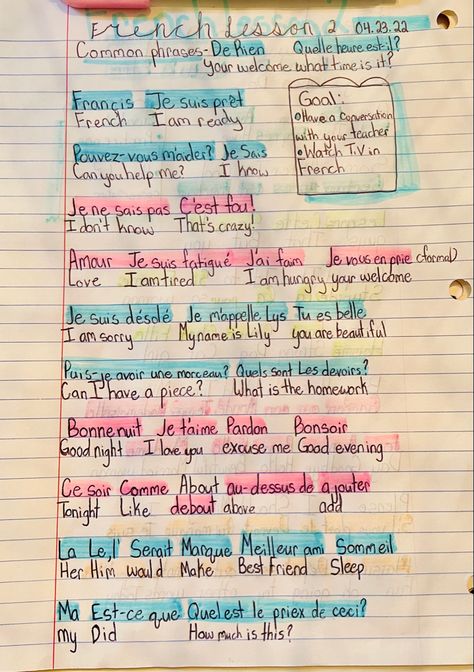 French Lesson 2 04.23.22
Common phrases- De Rien Quelle heure est-il?
Your welcome what time is it?
Goal:
Have a conversation
with your teacher
Watch T.V in
French
Francis Je suis prêt
French I am ready
Pouvez-vous m'aider? Je Sais
Can you help me? I know
Je ne sais pas C'est fou!
I don't know That's crazy!
Amour Je suis fatigué J'ai faim Je vous en prie (formal)
Love I am tired I am hungry your welcome
Je suis désolé Je m'appelle Lys Tu es belle
I am sorry My name is Lily you are beautiful
Puis-je avoir une morceau? Quels sont Les devoirs?
Can I have a piece? What is the homework
Bonne nuit Je t'aime Pardon Bonsoir
Good night I love you excuse me Good evening
Ce soir Comme About au-dessus de ajouter
Tonight Like debout above add
La Le, l' Serait Marque Meilleur ami Sommeil
Her Him would Make Best Friend Sleep
Ma Est-ce que Quel est le priex de ceci?
my Did How much is this?